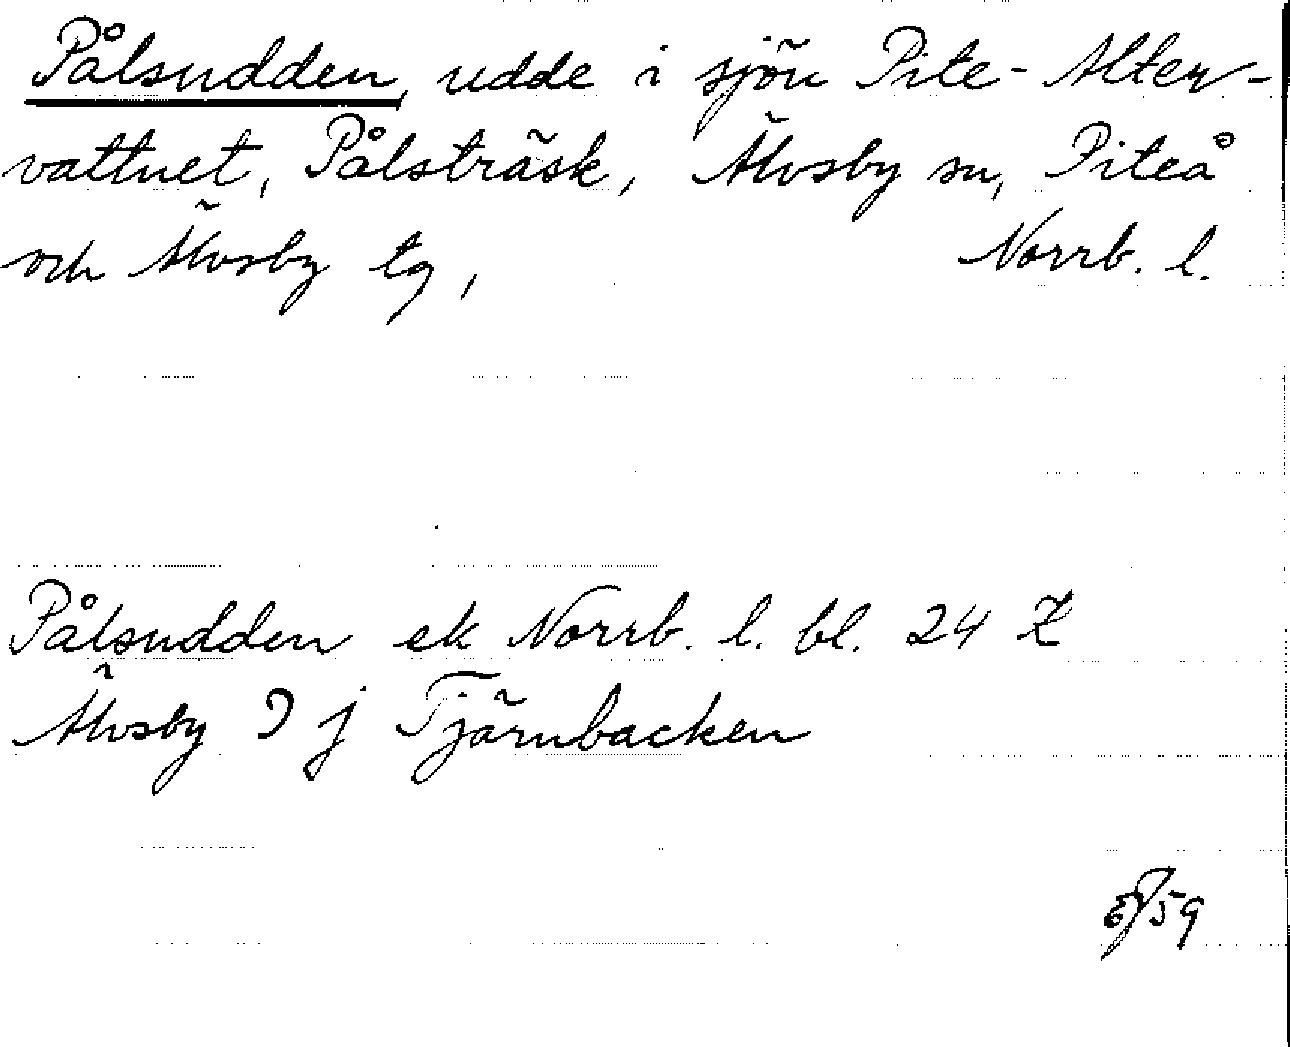 Pålsudden, udde i sjön Pite-Alter-
vattnet, Pålsträsk, Älvsby sn, Piteå
och Älvsby tg, Norrb. l.
Pålsudden ek Norrb. l. bl. 24 Z
Älvsby J j Tjärnbacken
59